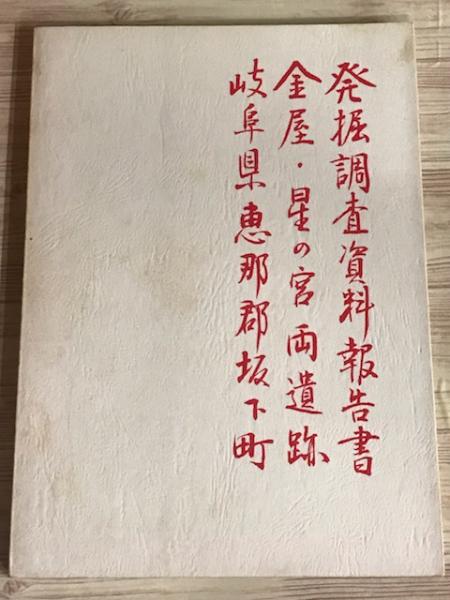 発掘調査資料報告書
金屋・星の宮両遺跡
岐阜県恵那郡坂下町